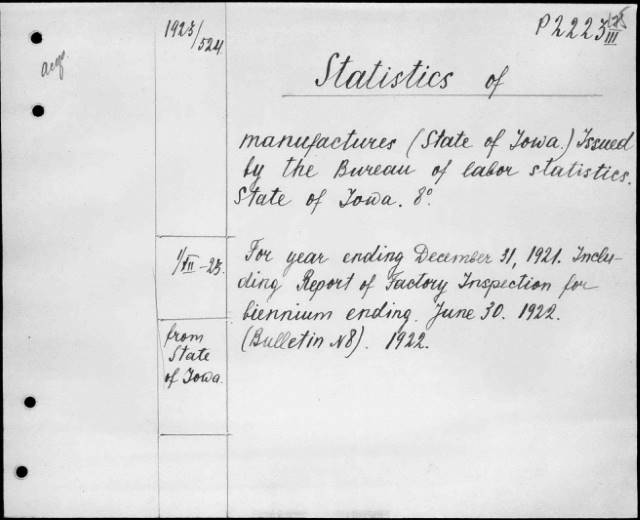 1925/524.
P2223 III
acqu
Statistics of
manufactures (State of Iowa.) Issued
by the Bureau of labor statistics.
State of Iowa. 8°.
1/VII-25.
For year ending December 31, 1921. Inclu-
ding Report of Factory Inspection for
biennium ending. June 30. 1922.
(Bulletin №8). 1922.
from
State
of Iowa.